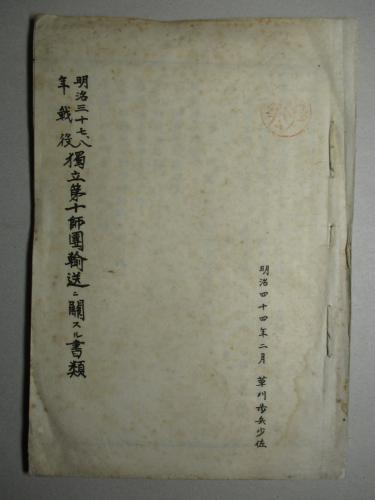 明治四十四年二月 草刈歩兵少佐
明治三十七、八
年戦役
獨立第十師團輸送ニ關スル書類